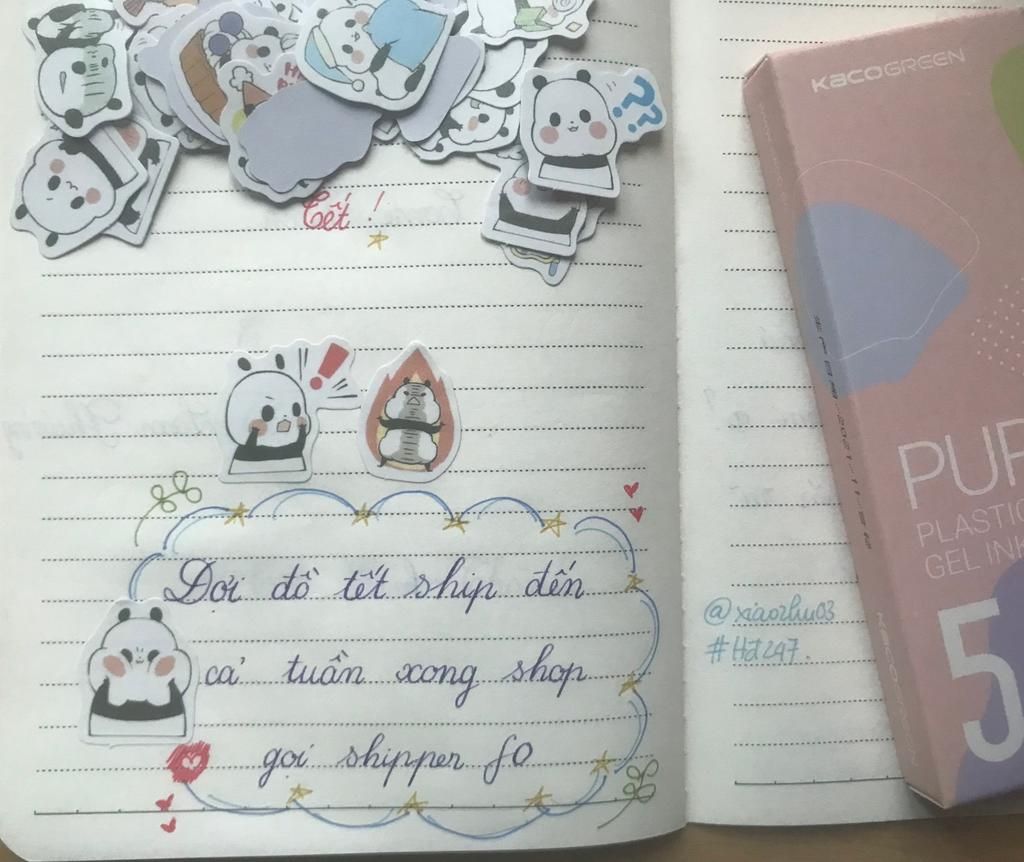 ??
KACOGREEN
Tết !
!
Đợi đồ tết ship đến
cả tuần xong shop
gọi shipper f0
@xiaozhu03
#Hd247.
PUR
PLASTIC
GEL INK
5
KACOGREEN